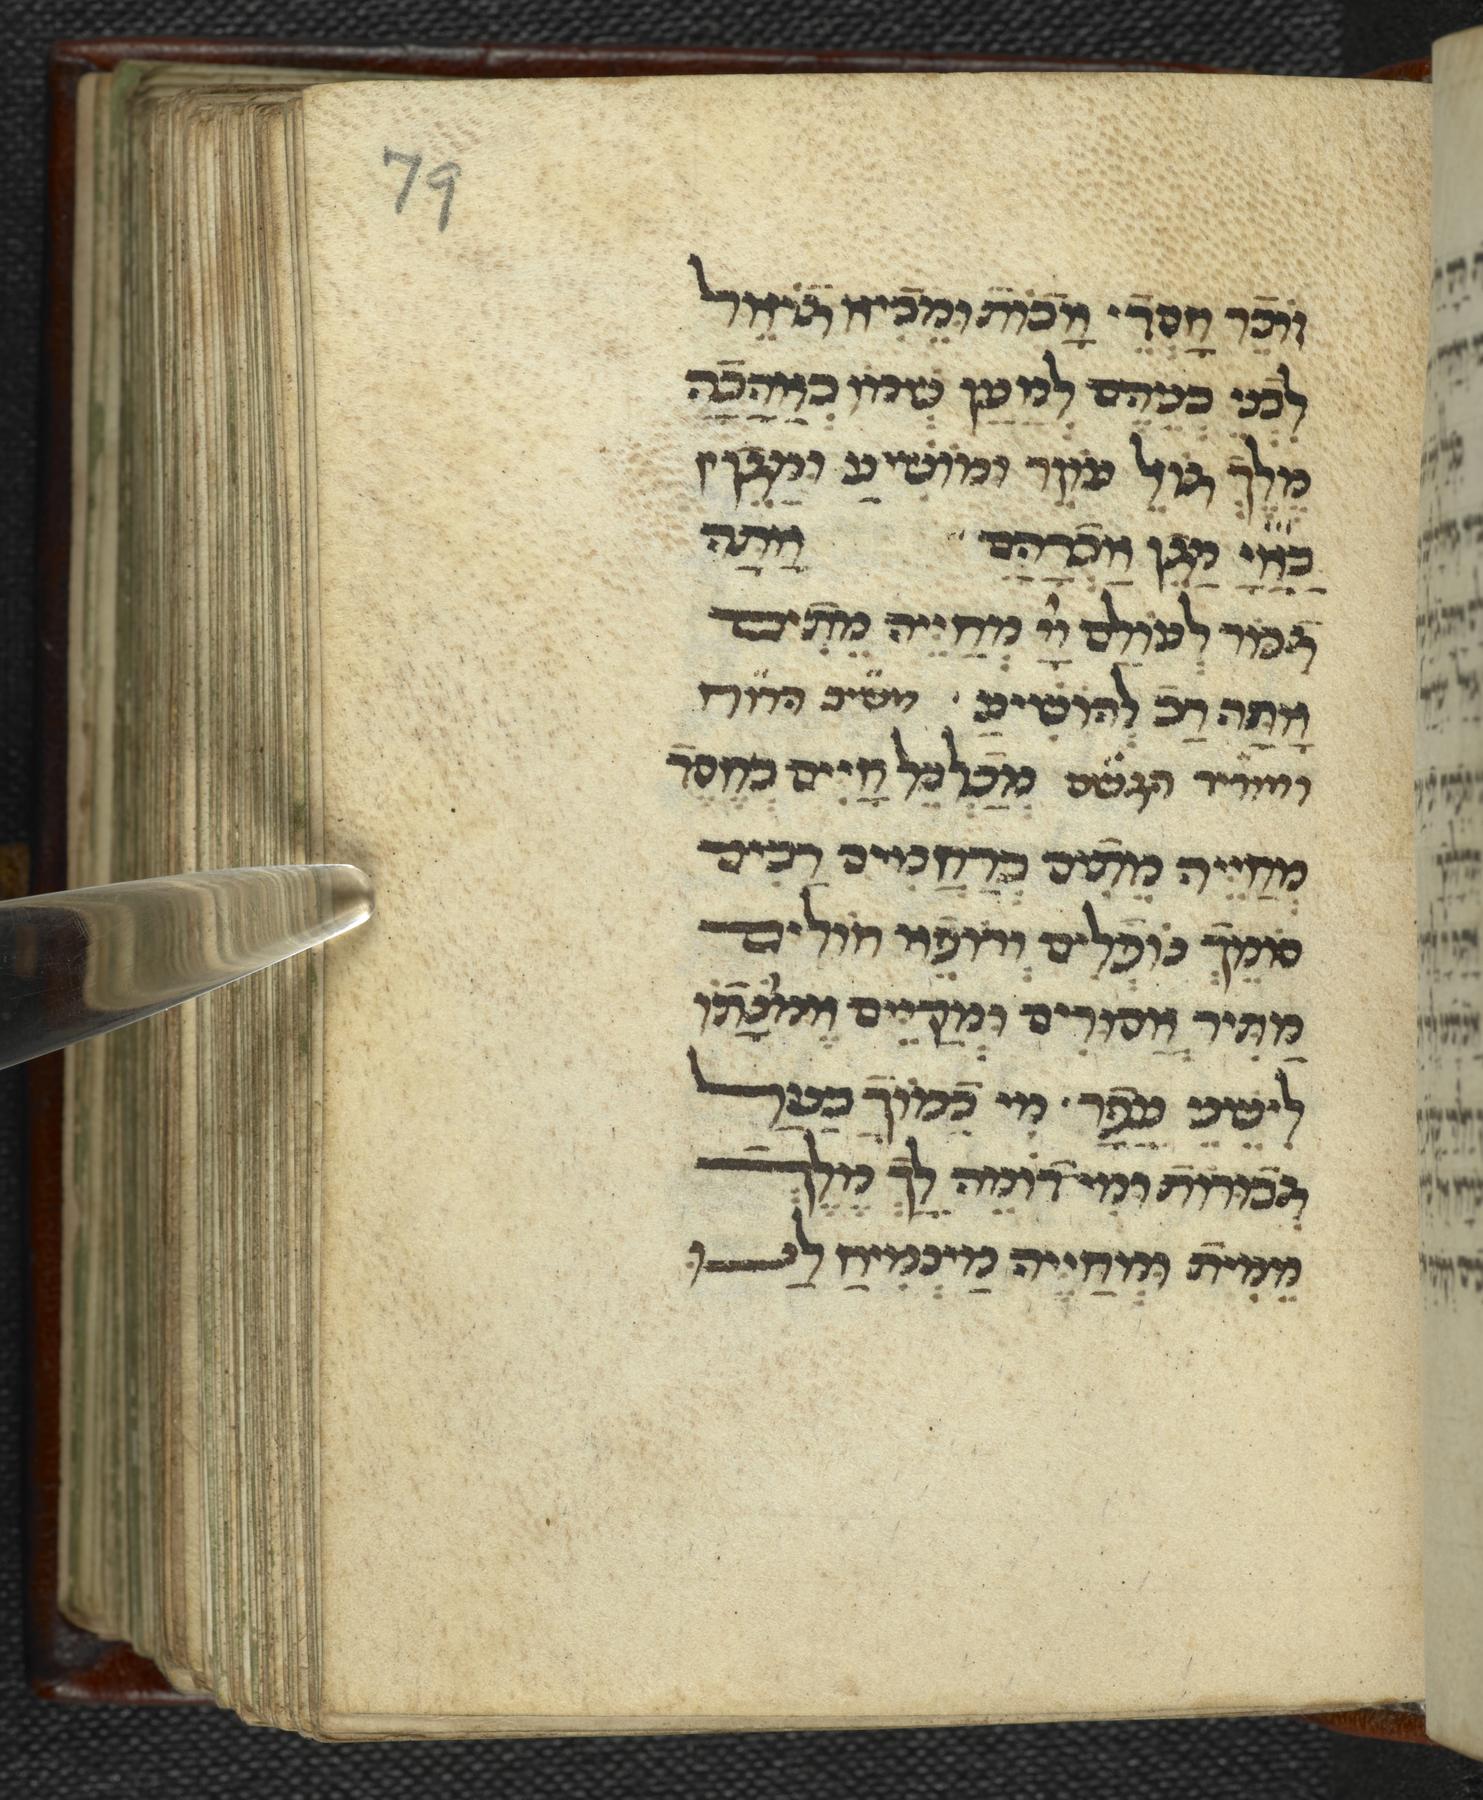 79
זוֹכֵר חַסְדֵי אָבוֹת וּמֵבִיא גוֹאֵל
לִבְנֵי בְנֵיהֶם לְמַעַן שְׁמוֹ בְאַהָבָה
מֶלֶךְ גוֹאֵל עוֹזֵר וּמוֹשִׁיעַ וּמָגֵן
בָאָיָ מָגֵן אַבְרָהָם אַתָה
גִבּוֹר לְעוֹלָם יְיָ מְחַיֵיה מֵתִים
אַתָה רַב לְהוֹשִׁיעַ משיב הרוח
ומוריד הגשם מְכַלְכֵל חַיִים בְחֶסֶד
מְחַיֵיה מֵתִים בְרַחֲמִים רַבִים
סוֹמֵךְ נוֹפְלִים וְרוֹפֵא חוֹלִים
מַתִיר אֲסוּרִים וּמְקַיֵים אֱמוּנָתוֹ
לִישֵׁנֵי עָפָר מִי כָמוֹךָ בַעַל
גְבוּרוֹת וּמִי דוֹמֶה לָךְ מֶלֶךְ
מֵמִית וּמְחַיֶיה מַצְמִיחַ לָנוּ